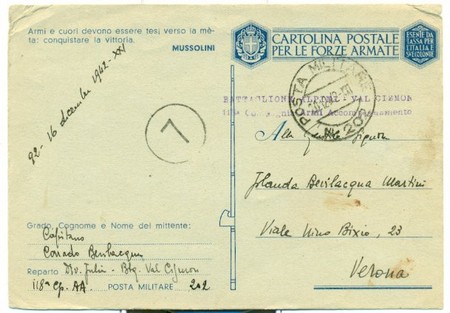 Armi e cuori devono essere tesi verso la mè-
ta: conquistare la vittoria.
MUSSOLINI
92 - 16 dicembre 1942-XXI
7
CARTOLINA POSTALE
PER LE FORZE ARMATE
ESENTE DA
TASSA PER
L'ITALIA E
SUE COLONIE
POSTA MILITARE
Nº 202
BATTAGLIONE ALPINI "VAL CISMON
118ª Compagnia Armi Accompagnamento
Alla gentile Signora
Jolanda Bevilacqua Martini
Viale Nino Bixio, 23
Verona
Grado, Cognome e Nome del mittente:
Capitano
Corrado Bevilacqua
Reparto Div. Julia - Btg. Val Cismon
118ª Cp. AA. POSTA MILITARE 202